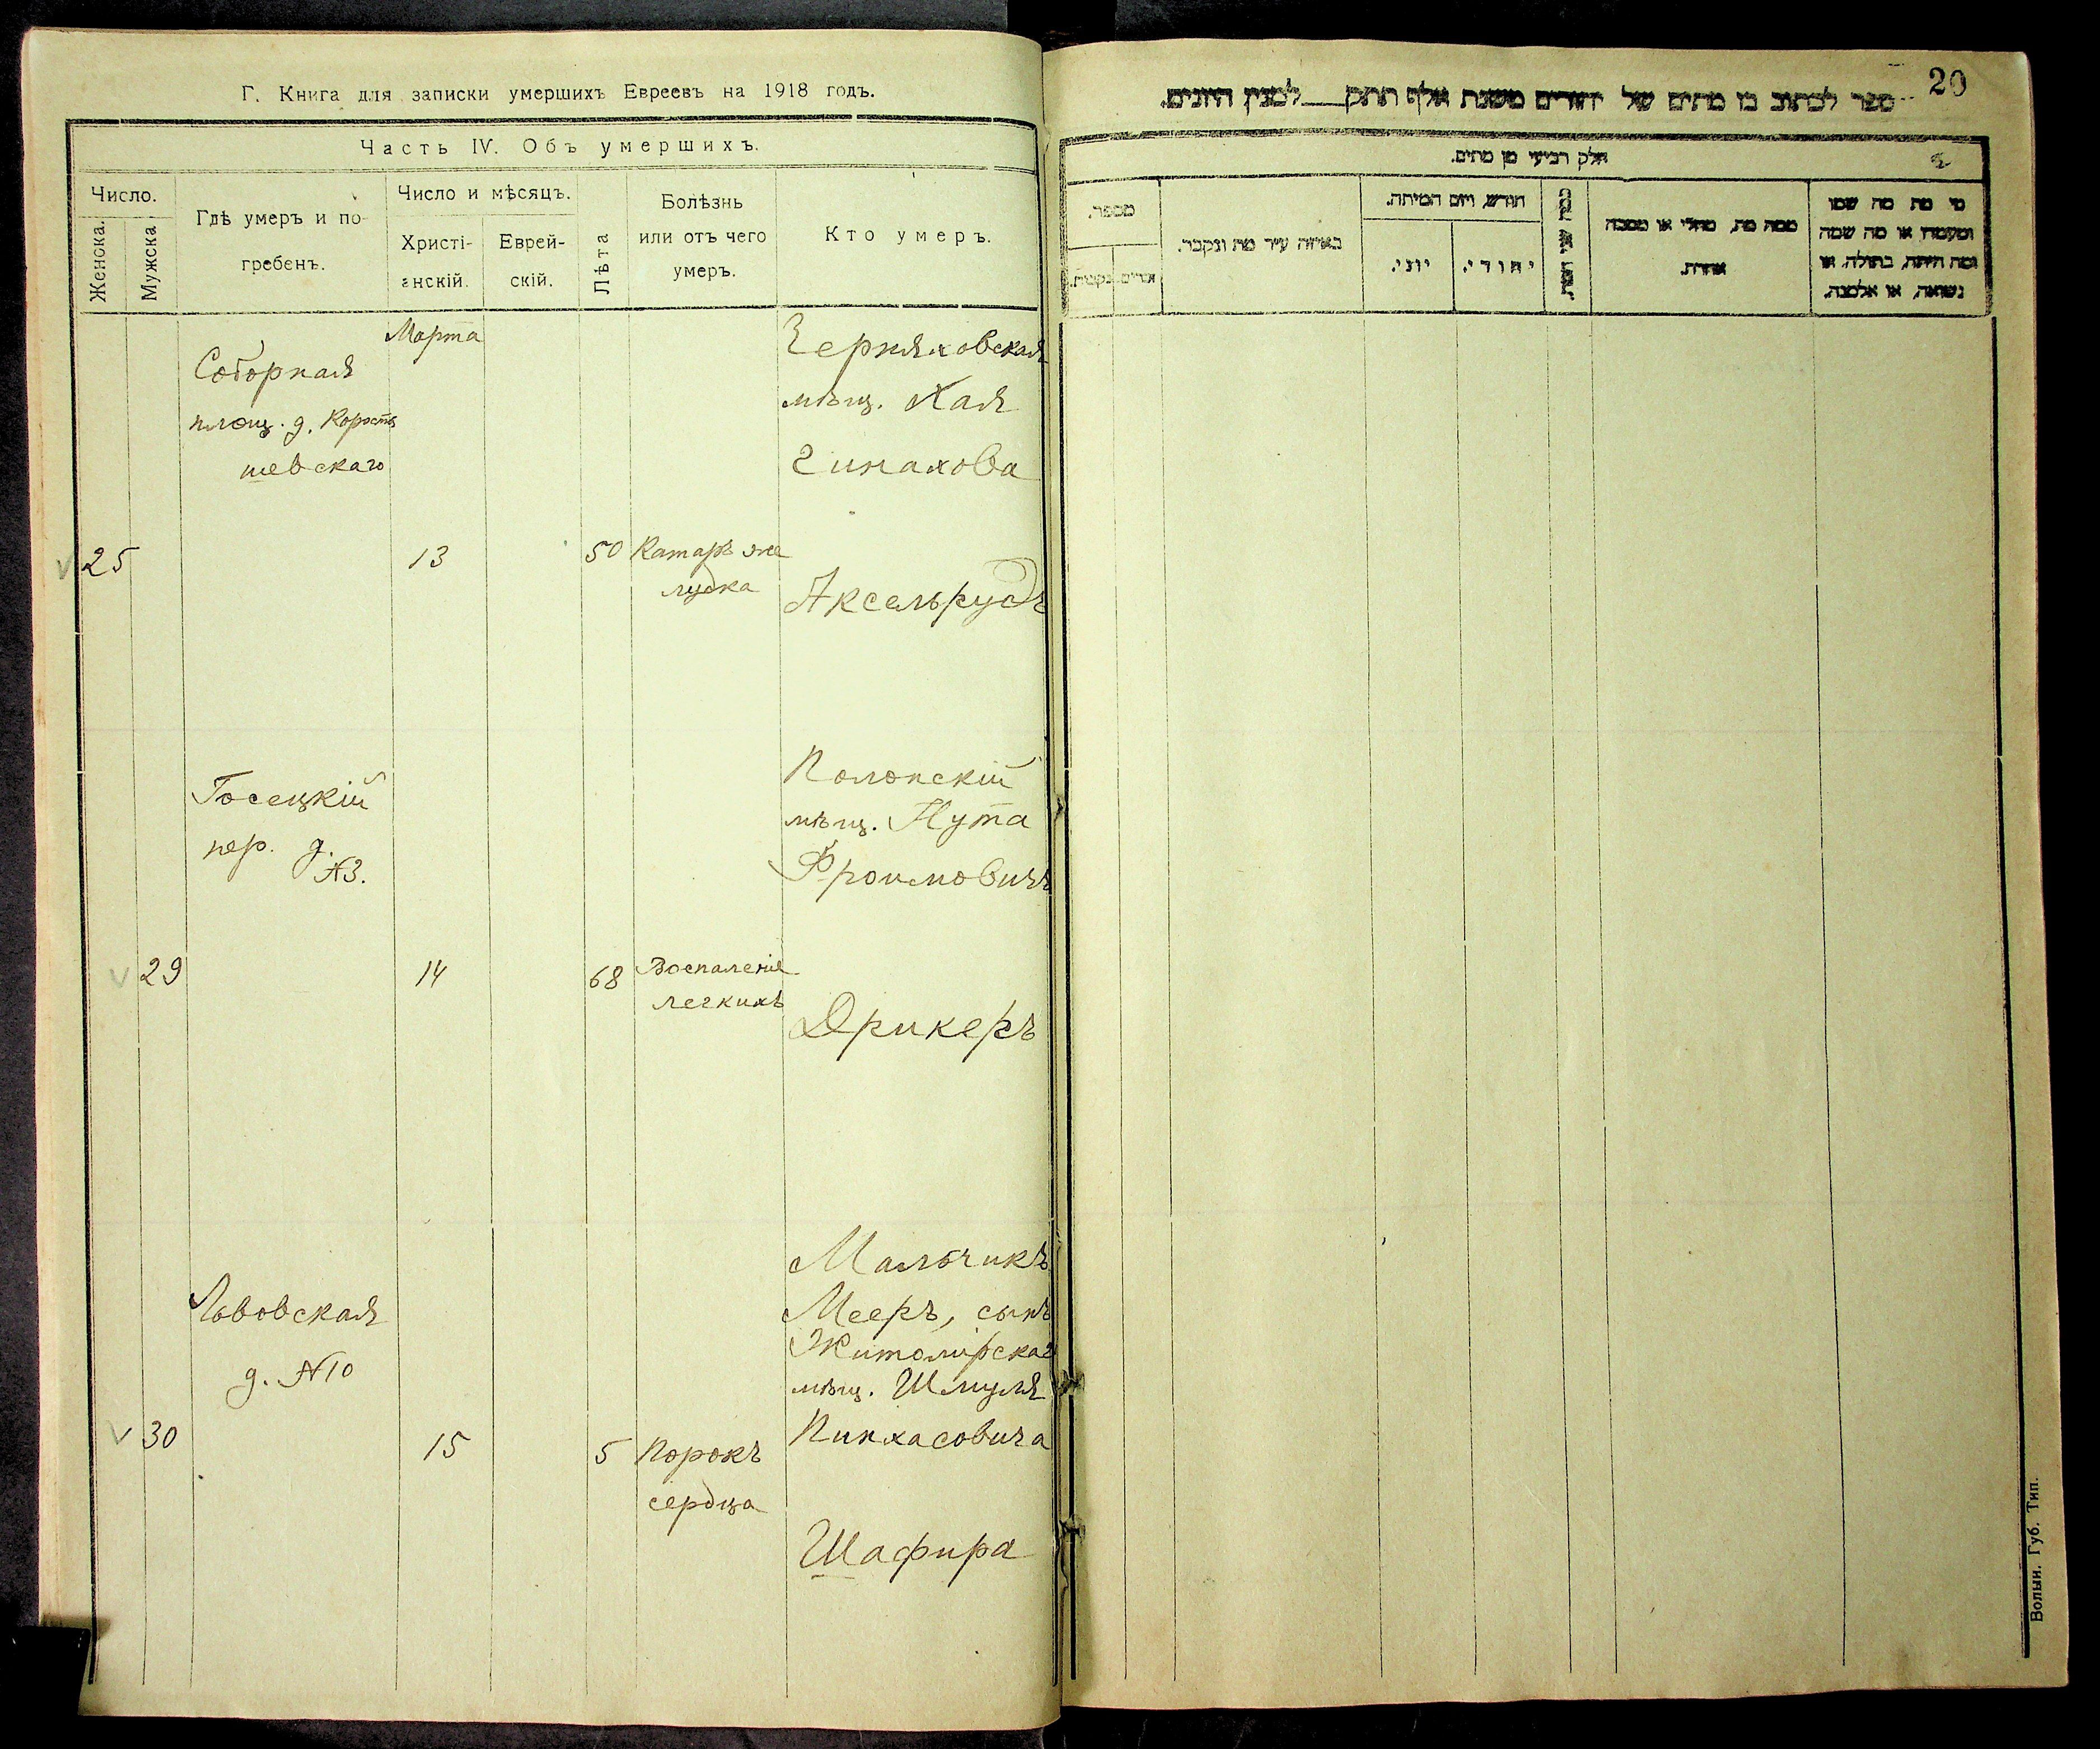 Г. Книга для записки умершихъ Евреевъ на 1918 годъ.
Часть IV. Объ умершихъ.
Число.
Женска.
Мужска
Гдѣ умеръ и по-
гребенъ.
Число и мѣсяцъ.
Христі-
анскій.
Еврей-
скій.
Лѣта
Болѣзнь
или отъ чего
умеръ.
Кто умеръ.
Марта
Соборная
площ. д.
шевскаго
25
13
50
Катаръ же
лудка
Черняховская
мѣщ. Хая
Аксельрудъ
пер. д.
№3.
29
14
68
Воспаленіе
легкихъ
Полонскій
мѣщ. Нута
Фроимовичъ
Дрикеръ
Львовская
д. №10
30
15
5
Порокъ
сердца
Мальчикъ
Мееръ, сынъ
Житомірскаго
мѣщ. Шмуля
Пинхасовича
Шафира
20
ספר לכתוב בו מתים של יהודים משנת אלף תתק למנין היונים.
חלק רביעי מן מתים.
מי מת מה שמו
ומעמדו או מה שמה
ומה היתה, בתולה, או
נשואה, או אלמנה.
ממה מת, מחלי או מסבה
אחרת.
חודש, ויום המיתה.
יהודי.
יוני.
באיזה עיר מת ונקבר.
מספר.
Волын. Губ. Тип.